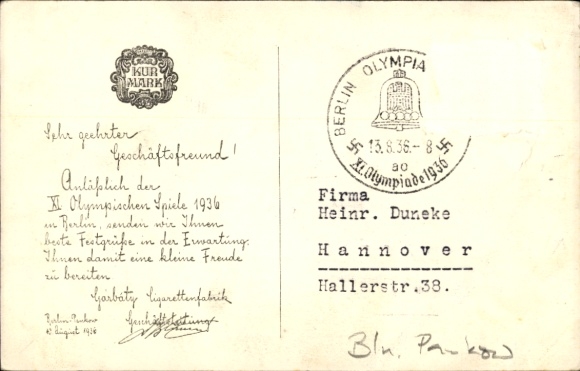 KUR
MARK
Sehr geehrter
Geschäftsfreund!
Anläßlich der
XI. Olympischen Spiele 1936
in Berlin, senden wir Ihnen
beste Festgrüße in der Erwartung,
Ihnen damit eine kleine Freude
zu bereiten.
Garbáty Cigarettenfabrik
Geschäftsleitung
Berlin-Pankow
August 1936
BERLIN OLYMPIA
13.8.36.- 8
ao
XI. Olympiade 1936
Firma
Heinr. Duneke
Hannover
Hallerstr.38.
Bln. Pankow